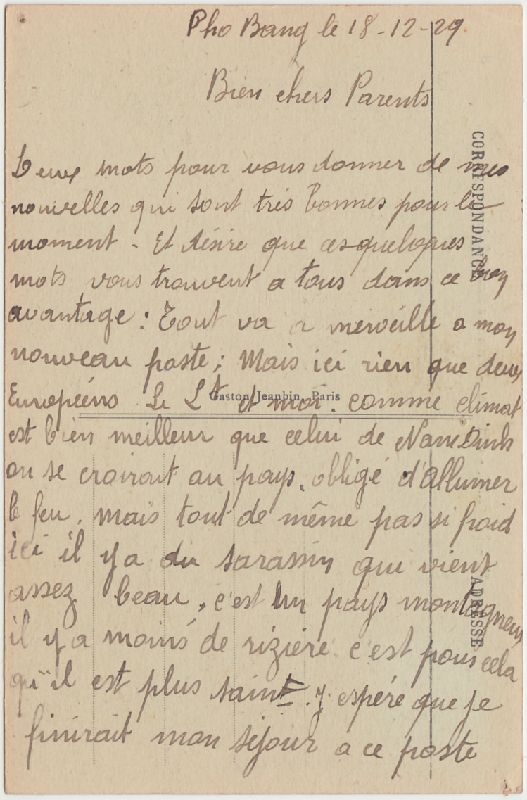 Pho Bang le 18-12-29
Bien chers Parents
Deux mots pour vous donner de mes
nouvelles qui sont très bonnes pour le
moment - Et désire que ces quelques
mots vous trouvent a tous dans ce bon
avantage : Tout va a merveille a mon
nouveau poste ; Mais ici rien que deux
Européens Le Lt et moi. comme climat
est bien meilleur que celui de Nam Dinh
on se croirait au pays, obligé d'allumer
le feu, mais tout de même pas si froid
ici il y a du sarassin qui vient
assez beau, c'est un pays montagneux
il y a moins de rizière c'est pour cela
qu'il est plus saint. j'espére que je
finirait mon séjour a ce poste
CORRESPONDANCE
Gaston Jeanbin, Paris
ADRESSE